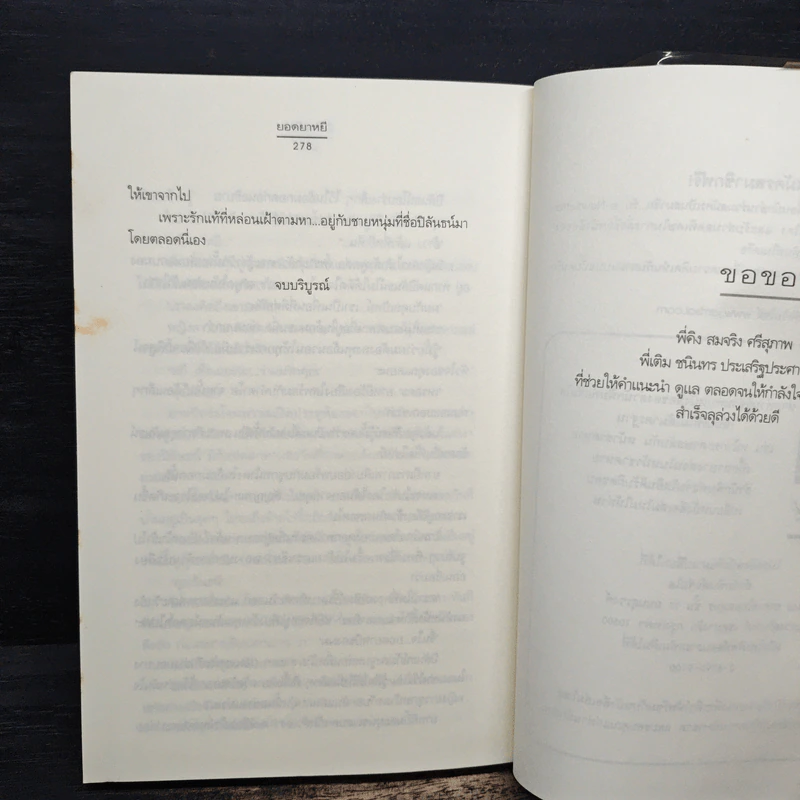 ยอดยาหยี
278
ให้เขาจากไป
เพราะรักแท้ที่หล่อนเฝ้าตามหา...อยู่กับชายหนุ่มที่ชื่อปีลันธน์มา
โดยตลอดนี่เอง
จบบริบูรณ์
ขอขอ
พี่คิง สมจริง ศรีสุภาพ
พี่เติม ชนินทร ประเสริฐประศา
ที่ช่วยให้คำแนะนำ ดูแล ตลอดจนให้กำลังใจ
สำเร็จลุล่วงได้ด้วยดี